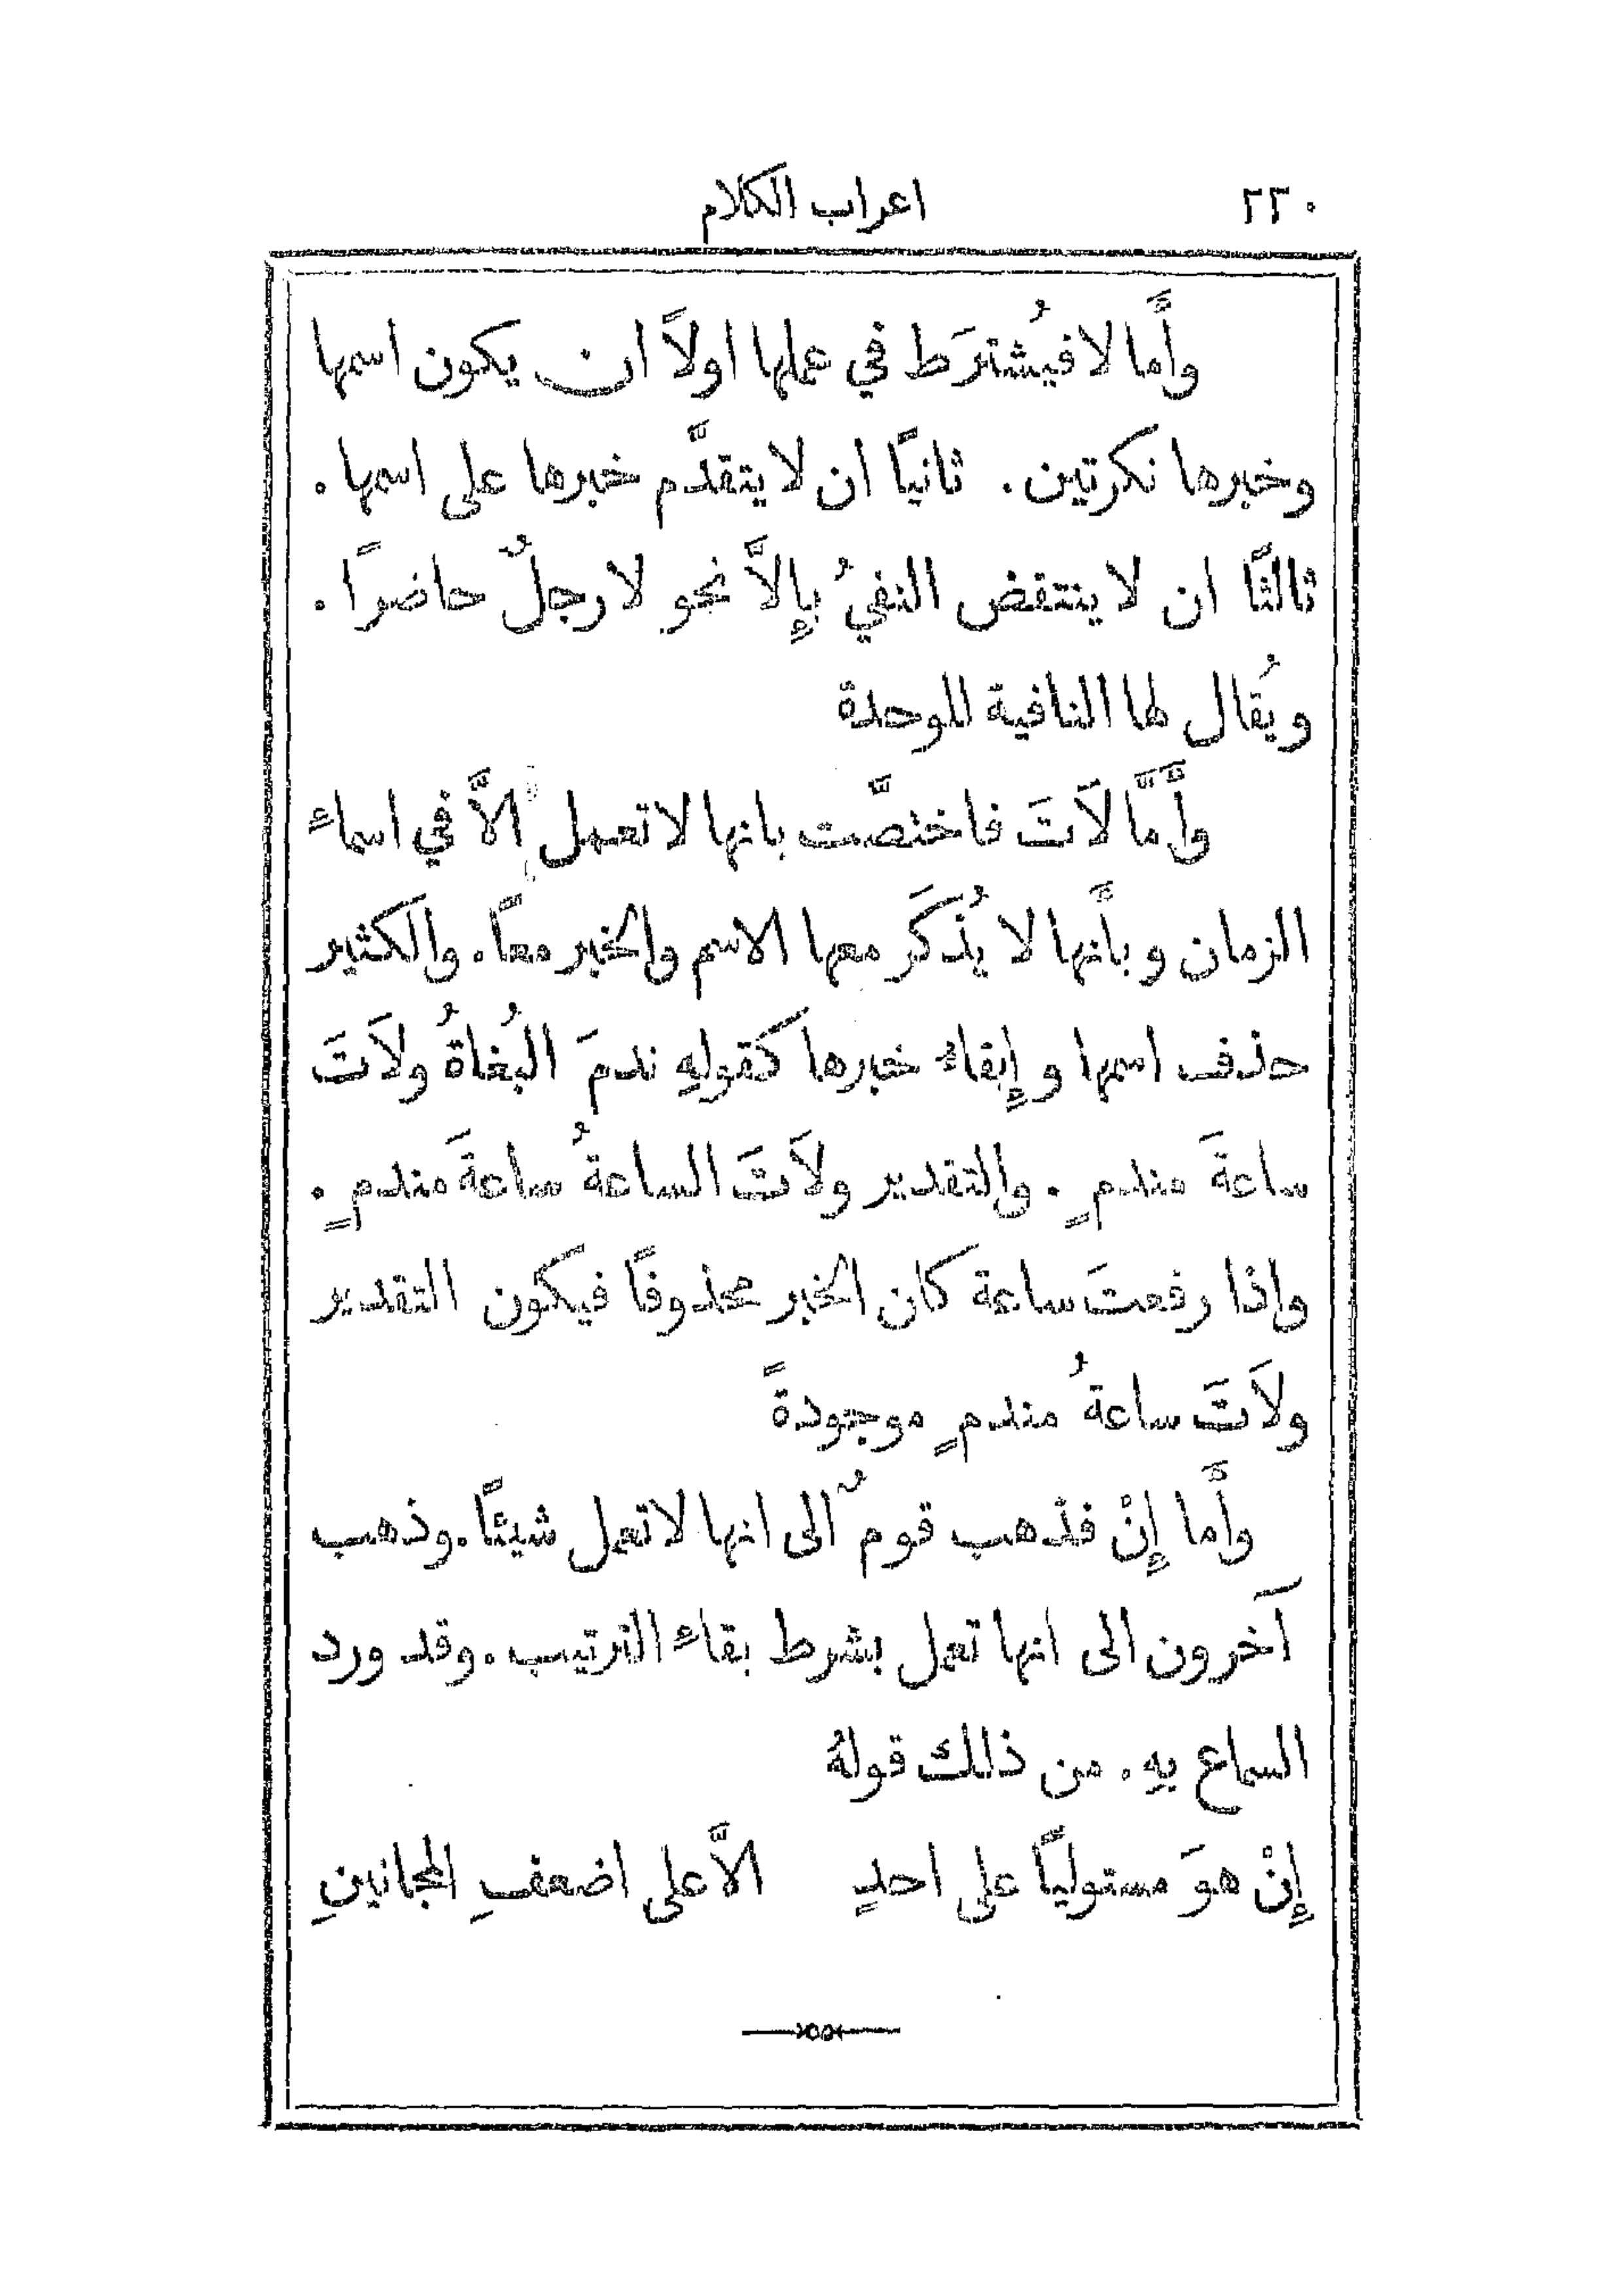 ٢٢٠ اعراب الكلام
وأَمَّا لا فيُشترَط في عملها اولاً ان يكون اسمها
وخبرها نكرتين. ثانيًا ان لا يتقدَّم خبرها على اسمها.
ثالثًا ان لا ينتقض النفيُ بإِلاَّ نحو لا رجلٌ حاضرًا.
ويُقال لها النافية للوحدة
وأَمَّا لاَتَ فاختصَّت بانها لا تعمل الاَّ في اسماء
الزمان وبأَنها لا يُذكَر معها الاسم والخبر معًا. والكثير
حذف اسمها وإِبقاء خبرها كقولهِ ندمَ البُغاةُ ولاَتَ
ساعةَ مندمٍ. والتقدير ولاَتَ الساعةُ ساعةَ مندمٍ.
واذا رفعتَ ساعة كان الخبر محذوفًا فيكون التقدير
ولاَتَ ساعةُ مندمٍ موجودةً
وأَما إِنْ فذهب قومٌ الى انها لا تعمل شيئًا. وذهب
آخرون الى انها تعمل بشرط بقاء الترتيب. وقد ورد
السماع بهِ. من ذلك قولهُ
إِنْ هوَ مستوليًا على احدٍ الاَّ على اضعفِ المجانينِ